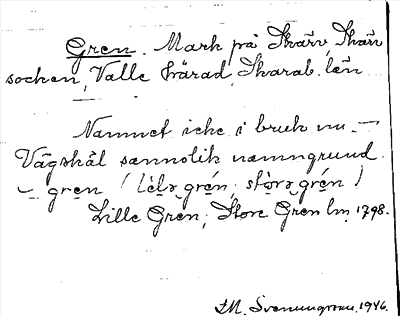 Gren. Mark på Skärv, Skärv
socken, Valle härad, Skarab. län
Namnet icke i bruk nu. —
Vägskäl sannolik namngrund.
— gren (lìlə grén, stòrə grén)
Lille Gren, Store Gren lm 1798.
LM. Svenungsson, 1946.